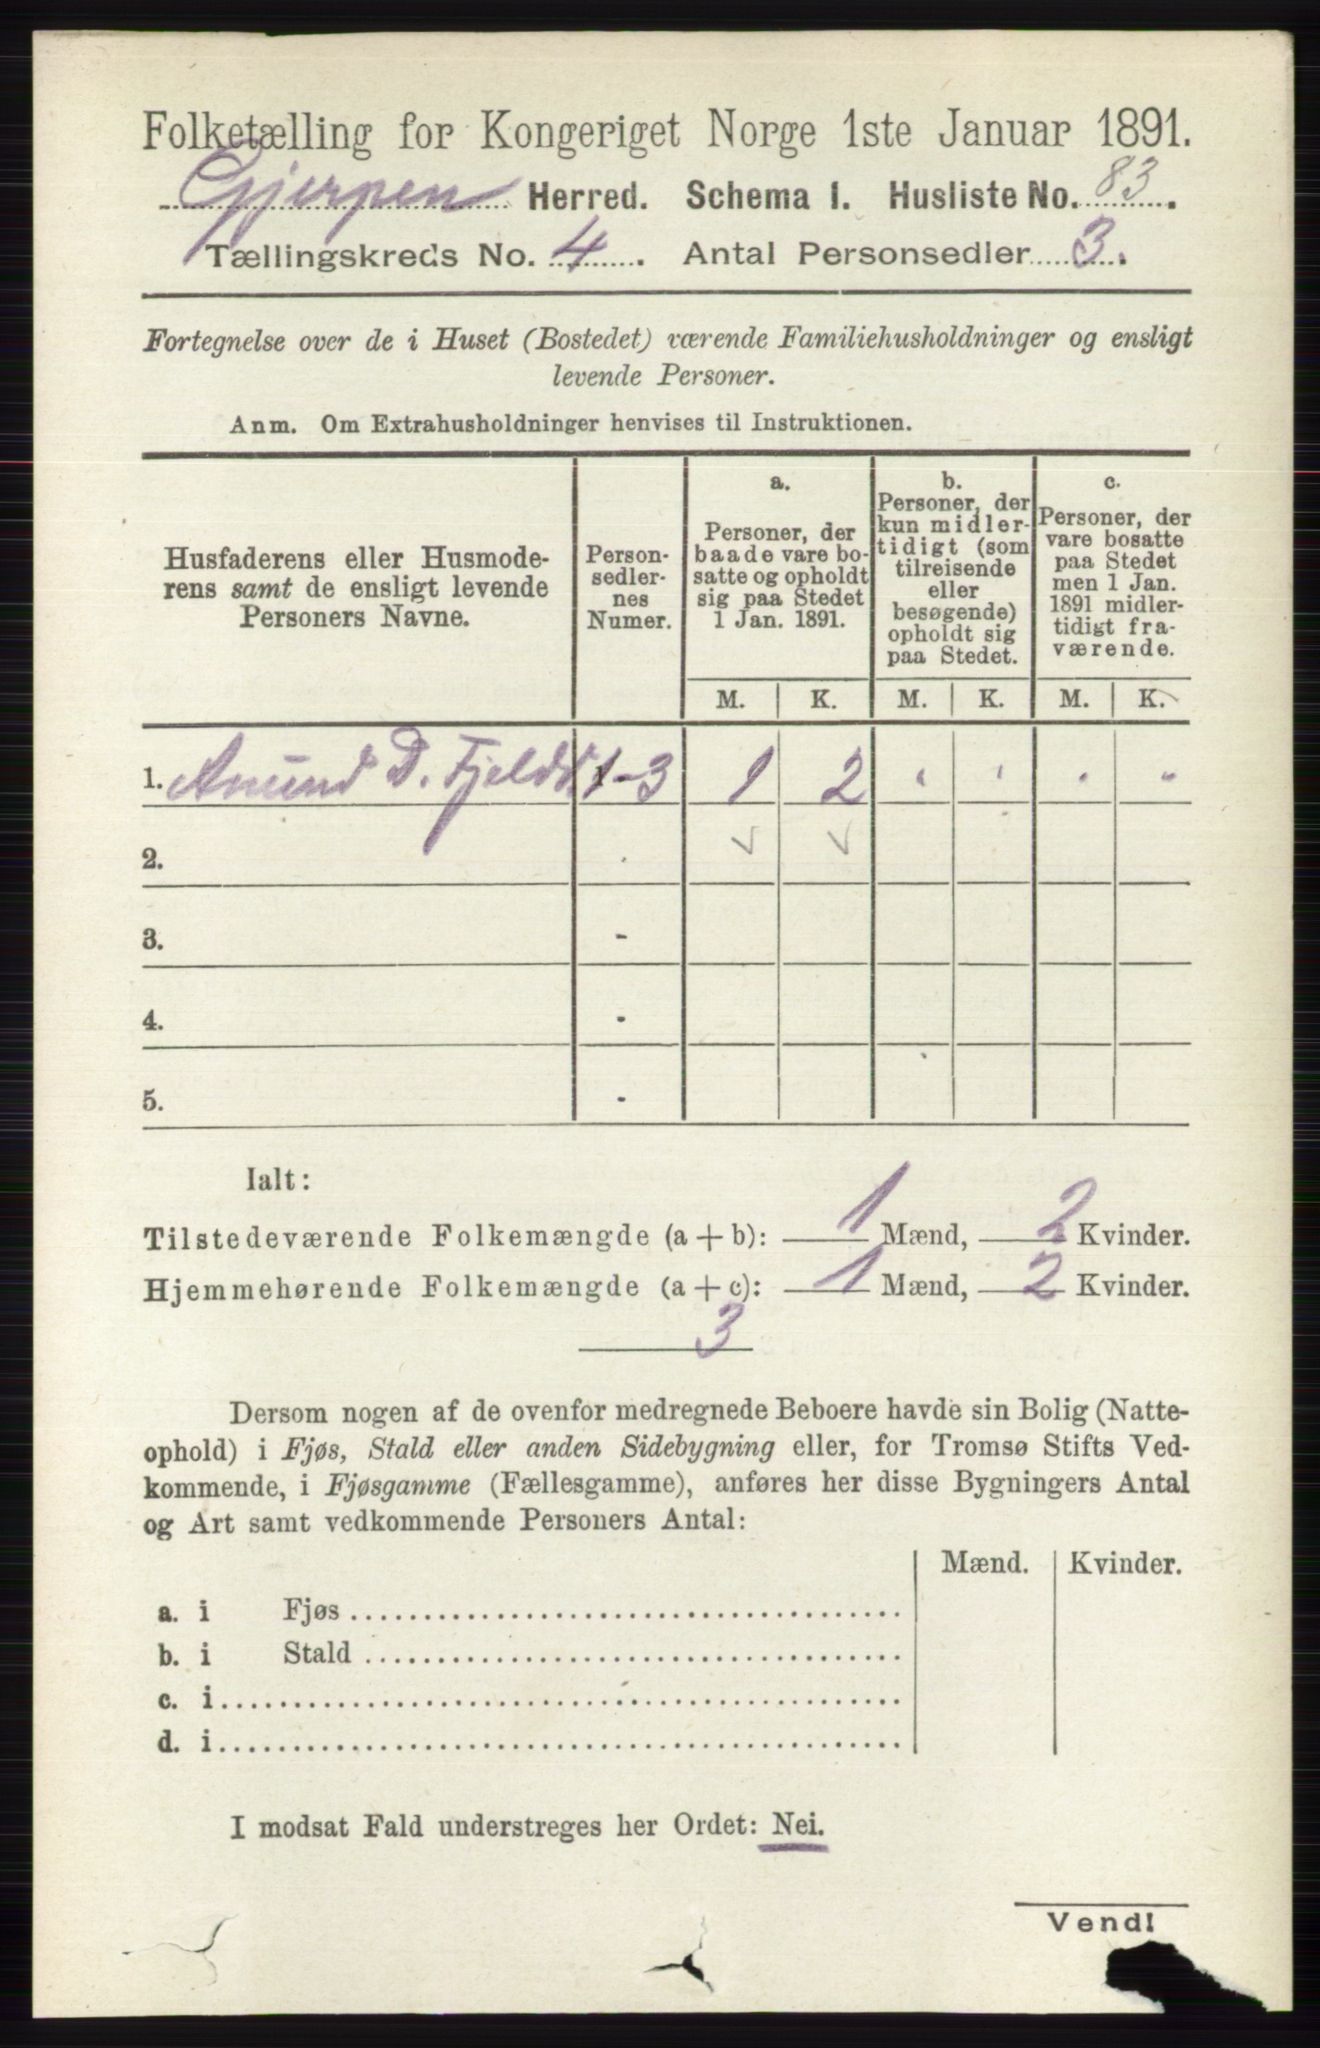 Folketælling for Kongeriget Norge 1ste Januar 1891.
Gjerpen Herred. Schema I. Husliste No. 83.
Tællingskreds No. 4. Antal Personsedler 3.
Fortegnelse over de i Huset (Bostedet) værende Familiehusholdninger og ensligt
levende Personer.
Anm. Om Extrahusholdninger henvises til Instruktionen.
Husfaderens eller Husmode-
rens samt de ensligt levende
Personers Navne.
Person-
sedler-
nes
Numer.
a.
Personer, der
baade vare bo-
satte og opholdt
sig paa Stedet
1 Jan. 1891.
b.
Personer, der
kun midler-
tidigt (som
tilreisende
eller
besøgende)
opholdt sig
paa Stedet.
c.
Personer, der
vare bosatte
paa Stedet
men 1 Jan.
1891 midler-
tidigt fra-
værende.
M. K. M. K. M. K.
1. Amund D. 1-3 1 2
2.
3. -
4. -
5. -
Ialt:
Tilstedeværende Folkemængde (a + b): 1 Mænd, 2 Kvinder.
Hjemmehørende Folkemængde (a + c): 1 Mænd, 2 Kvinder.
3
Dersom nogen af de ovenfor medregnede Beboere havde sin Bolig (Natte-
ophold) i Fjøs, Stald eller anden Sidebygning eller, for Tromsø Stifts Ved-
kommende, i Fjøsgamme (Fællesgamme), anføres her disse Bygningers Antal
og Art samt vedkommende Personers Antal:
Mænd. Kvinder.
a. i Fjøs
b. i Stald
c. i
d. i
I modsat Fald understreges her Ordet: Nei.
Vend!